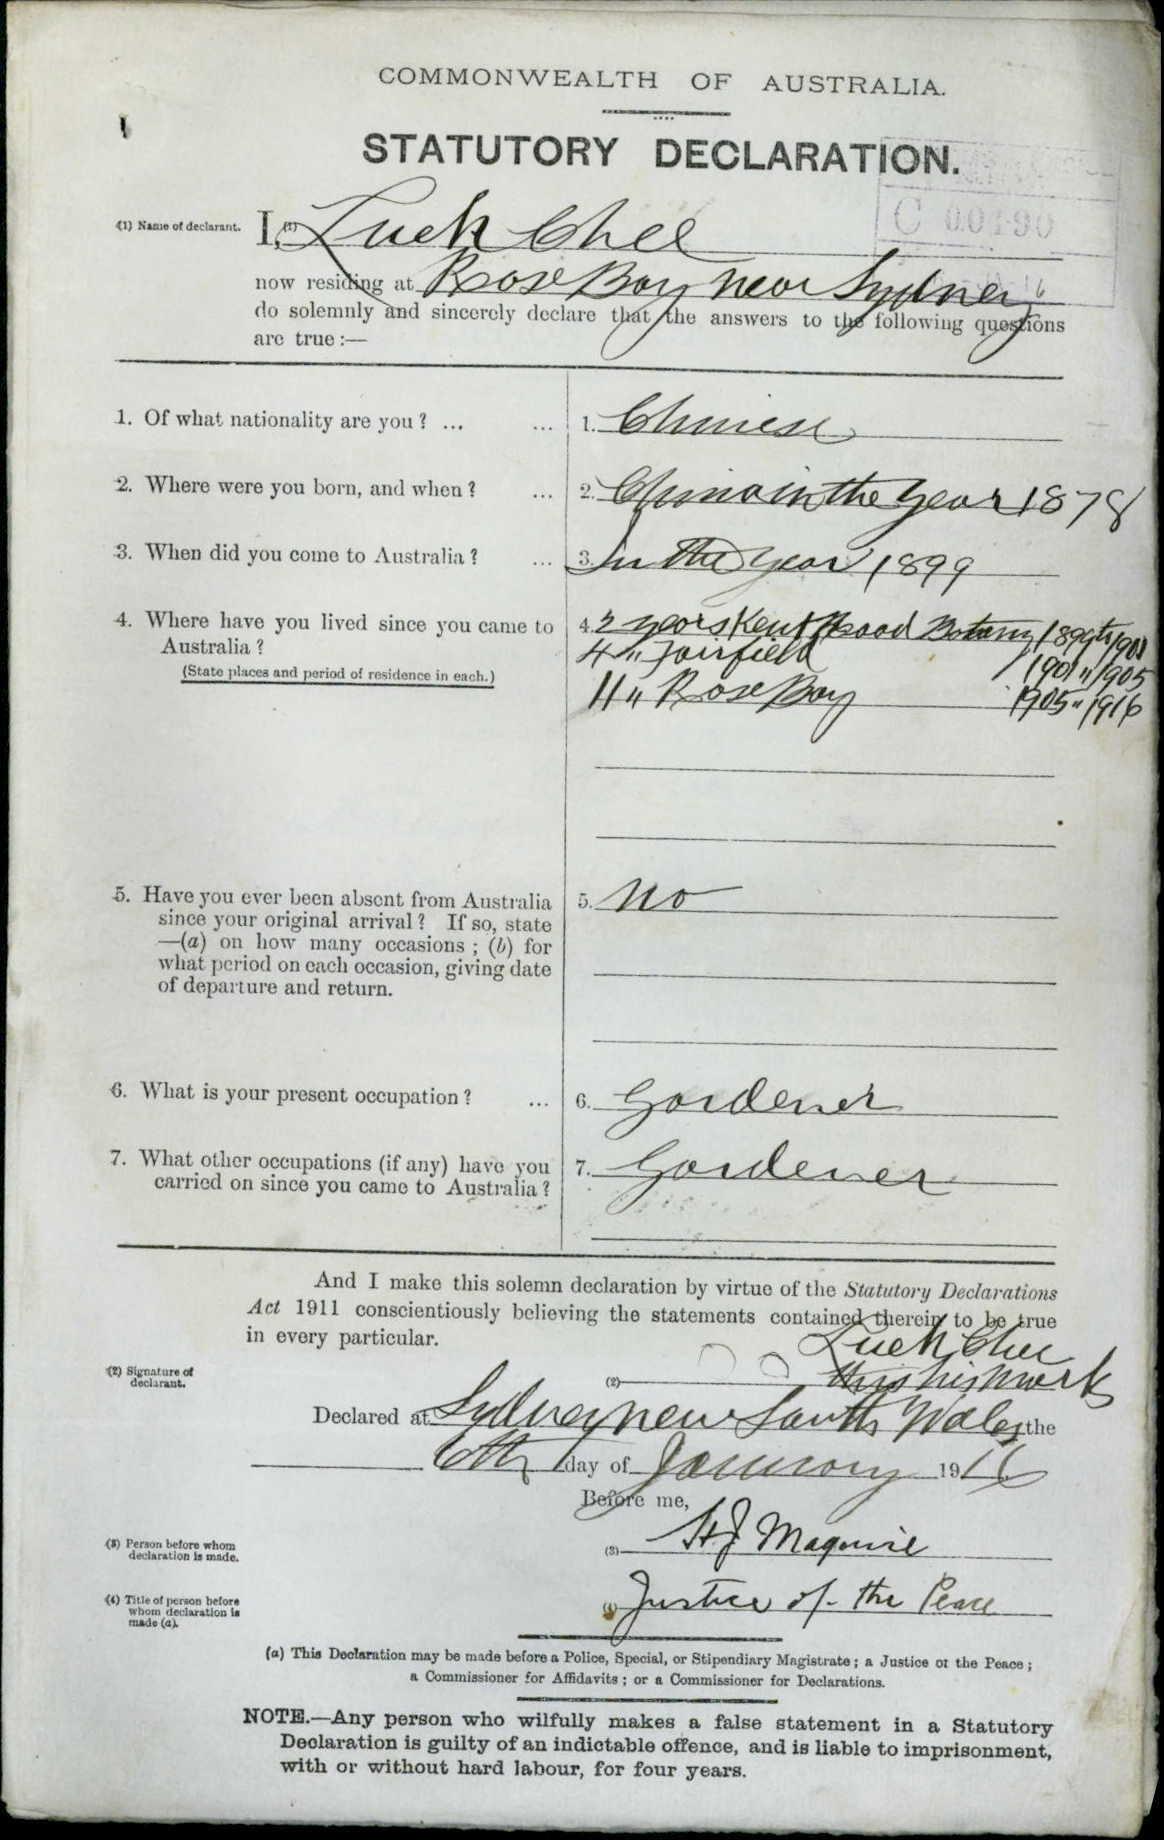 COMMONWEALTH OF AUSTRALIA.
STATUTORY DECLARATION.
C 00490
(1) Name of declarant.
I, (1) Luek Chee
now residing at Rose Bay near Sydney
do solemnly and sincerely declare that the answers to the following questions
are true:—
1. Of what nationality are you? ... ... 1. Chinese
2. Where were you born, and when? ... 2. China in the year 1878
3. When did you come to Australia? ... 3. In the year 1899
4. Where have you lived since you came to 4. 2 years Kent Road Botany 1899 to 1901
Australia? 4 " Fairfield 1901 " 1905
(State places and period of residence in each.) 11 " Rose Bay 1905 " 1916
5. Have you ever been absent from Australia 5. No
since your original arrival? If so, state
—(a) on how many occasions; (b) for
what period on each occasion, giving date
of departure and return.
6. What is your present occupation? ... 6. Gardener
7. What other occupations (if any) have you 7. Gardener
carried on since you came to Australia?
And I make this solemn declaration by virtue of the Statutory Declarations
Act 1911 conscientiously believing the statements contained therein to be true
in every particular.
Luek Chee
(2) Signature of
declarant.
(2) this his mark
Declared at Sydney New South Wales the
6th day of January 1916
Before me,
(3) Person before whom
declaration is made.
(3) H J Maguire
(4) Title of person before
whom declaration is
made (a).
(4) Justice of the Peace
(a) This Declaration may be made before a Police, Special, or Stipendiary Magistrate; a Justice of the Peace;
a Commissioner for Affidavits; or a Commissioner for Declarations.
NOTE.—Any person who wilfully makes a false statement in a Statutory
Declaration is guilty of an indictable offence, and is liable to imprisonment,
with or without hard labour, for four years.